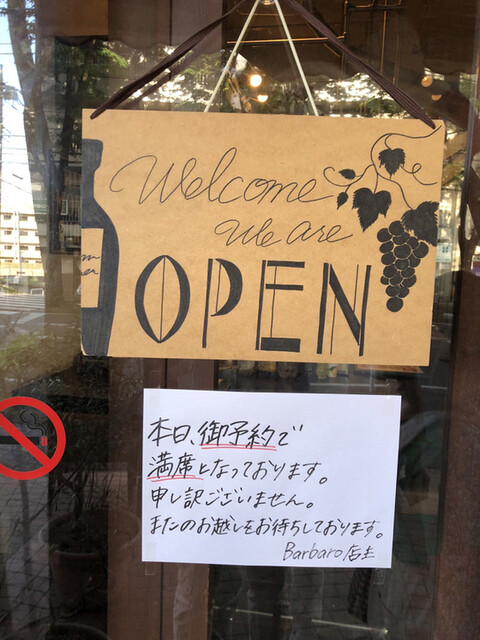 Welcome
We are
OPEN
本日、御予約で
満席となっております。
申し訳ございません。
またのお越しをお待ちしております。
Barbaro店主